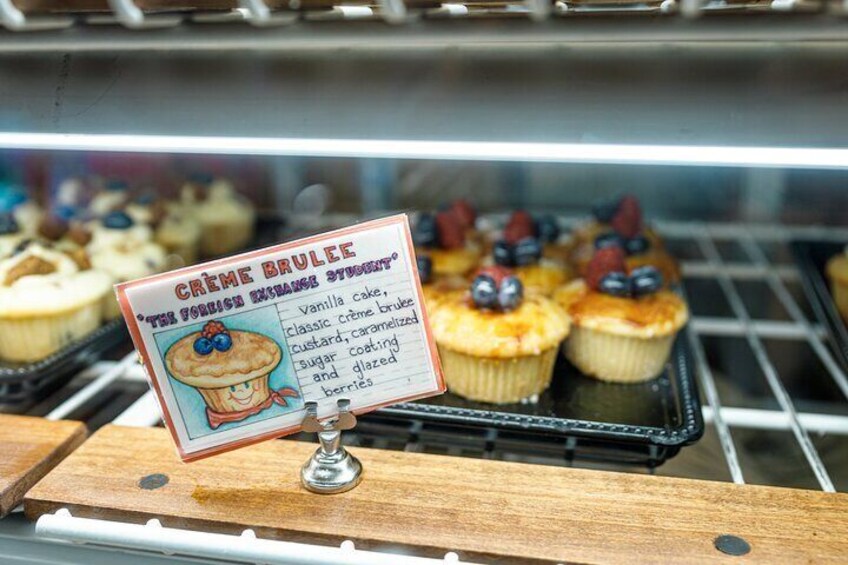 CRÈME BRULEE
"THE FOREIGN EXCHANGE STUDENT"
vanilla cake,
classic crème brulee
custard, caramelized
sugar coating
and glazed
berries